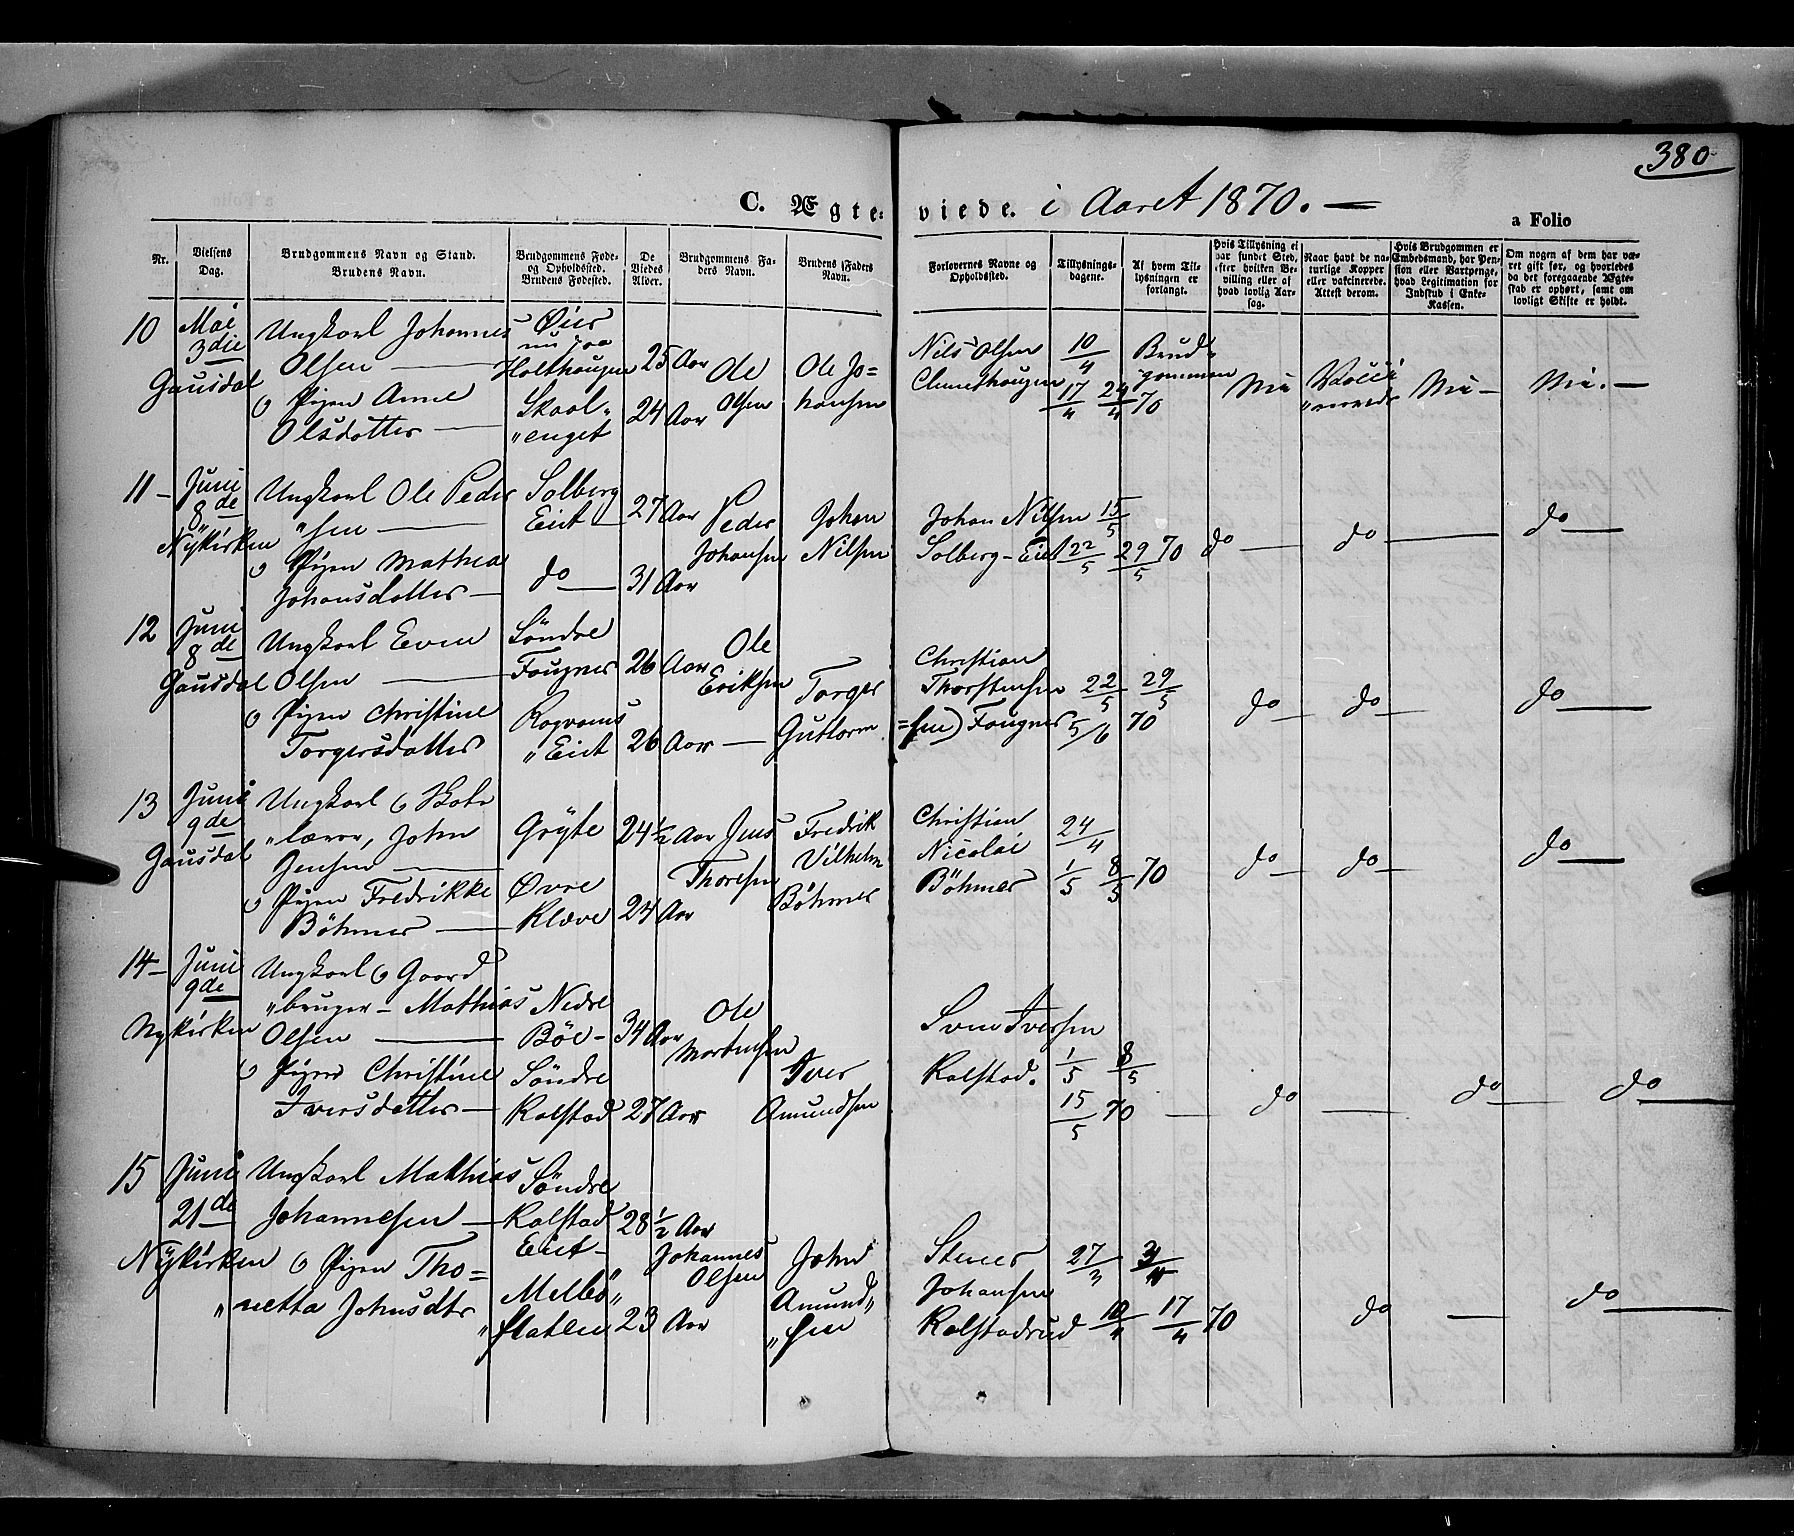 380
C. Ægte- viede. i Aaret 1870. —
a Folio
Nr.
Vielsens Dag.
Brudgommens Navn og Stand. Brudens Navn.
Brudgommens Føde- og Opholdssted. Brudens Fødested.
De Viedes Alder.
Brudgommens Faders Navn.
Brudens Faders Navn.
Forlovernes Navne og Opholdssted.
Tillysningsdagene.
Af hvem Tillysningen er forlangt.
Hvis Tillysning ei har fundet Sted, efter hvilken Bevilling eller af hvad lovlig Aarsag.
Naar havt de naturlige Kopper eller vakcinerede. Attest derom.
Hvis Brudgommen er Embedsmand, har Pension eller Vartpenge, hvad Legitimation for Indskud i Enke-Kassen.
Om nogen af dem har været gift før, og hvorledes da det foregaaende Ægteskab er ophørt, samt om lovligt Skifte er holdt.
10
Mai 3die Gausdal
Ungkarl Johannes
Olsen —
o Pigen Anne
Olsdatter —
Øier nu paa
Holthougen
Skaal„
„enget
25 Aar
24 Aar
Ole Olsen
Ole Jo=
hansen
Nils Olsen
10/4 17/4 24/4 70
Brud„
gommen
11 —
Juni 8de Nykirken
Ungkarl Ole Peder
„sen —
o Pigen Mathea
Johansdatter —
Solberg
Eiet —
do —
27 Aar
31 Aar
Peder
Johansen
Johan
Nilsen
Johan Nilsen
Solberg-Eiet
15/5 22/5 29/5 70
do — do — do —
12
Juni 8de Gausdal
Ungkarl Even
Olsen —
o Pigen Christine
Torgersdatter
Söndre
Fougner
„Eiet
26 Aar
26 Aar —
Ole
Eriksen
Torger
Guttorm
=sen)
Christian
Thorstensen
Fougner
22/5 29/5
5/6 70
do — do — do —
13
Juni 9de Gausdal
Ungkarl o Skole
„lærer, John
Jensen —
o Pigen Fredrikke
Böhmer —
Gryte
Øvre
Kleve
24 1/2 Aar
24 Aar
Jens
Thoresen
Fredrik
Vilhelm
Böhmer
Christian
Nicolai
Böhmer
24/4
1/5 8/5 70
do — do — do —
14 —
Juni 9de Nykirken
Ungkarl o Gaard
„bruger — Mathias
Olsen —
o Pigen Christine
Iversdatter —
Nedre
Böe —
Söndre
Kalstad
34 Aar
27 Aar
Ole
Mortensen
Iver
Amundsen
Sven Iversen
Kalstad.
1/5 8/5
15/5 70 —
do — do do
15
Juni 21de Nykirken
Ungkarl Mathias
Johannesen —
o Pigen Tho=
„netta Johnsdtr
Söndre
Kalstad
Eiet —
Mellbö„
„flaten
28 1/2 Aar
23 Aar
Johannes
Olsen
John
Amund„
„sen
Stener
Johansen
Kalstadrud
27/3
10/4 17/4 70
do — do —